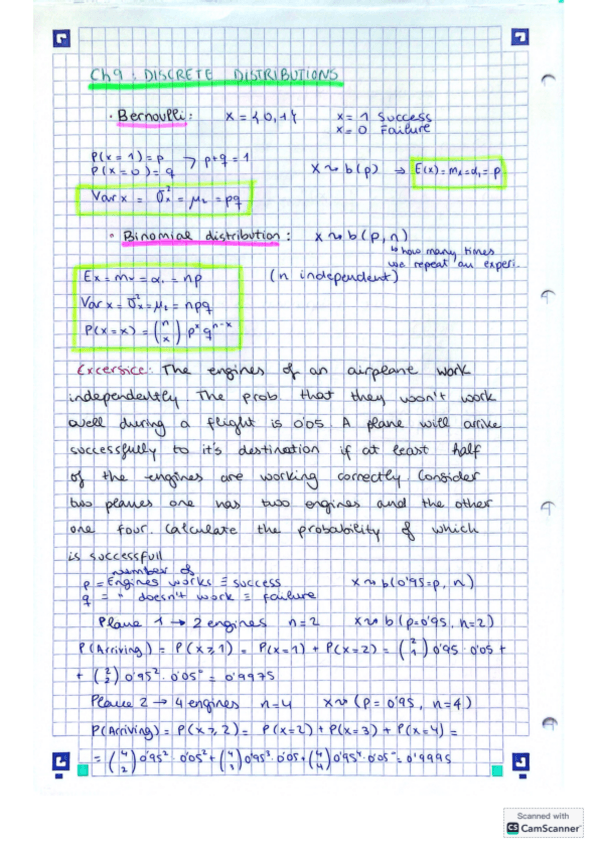 Ch 9: DISCRETE DISTRIBUTIONS
· Bernoulli: X = {0,1} X = 1 Success
X = 0 Failure
P(X=1) = p
P(X=0) = q > p+q = 1
X ~ b(p) → E(X) = m₁ = α₁ = p
Var x = σx² = μ₂ = pq
· Binomial distribution: X ~ b(p,n)
↳ how many times
we repeat an experi.
Ex = m₁ = α₁ = np (n independent)
Var x = σx² = μ₂ = npq
P(X=x) = (n x) pˣ qⁿ⁻ˣ
Excersice: The engines of an airplane work
independently. The prob. that they won't work
well during a flight is 0'05. A plane will arrive
successfully to it's destination if at least half
of the engines are working correctly. Consider
two planes one has two engines and the other
one four. Calculate the probability of which
is successfull
number of
p = Engines works ≡ success X ~ b(0'95=p, n)
q = " doesn't work ≡ failure
Plane 1 → 2 engines n=2 X ~ b(p=0'95, n=2)
P(Arriving) = P(X≥1) = P(X=1) + P(X=2) = (2 1) 0'95 · 0'05 +
+ (2 2) 0'95² · 0'05⁰ = 0'9975
Plane 2 → 4 engines n=4 X ~ (p=0'95, n=4)
P(Arriving) = P(X≥2) = P(X=2) + P(X=3) + P(X=4) =
= (4 2) 0'95² · 0'05² + (4 3) 0'95³ · 0'05 + (4 4) 0'95⁴ · 0'05⁰ = 0'9995
Scanned with
CS CamScanner